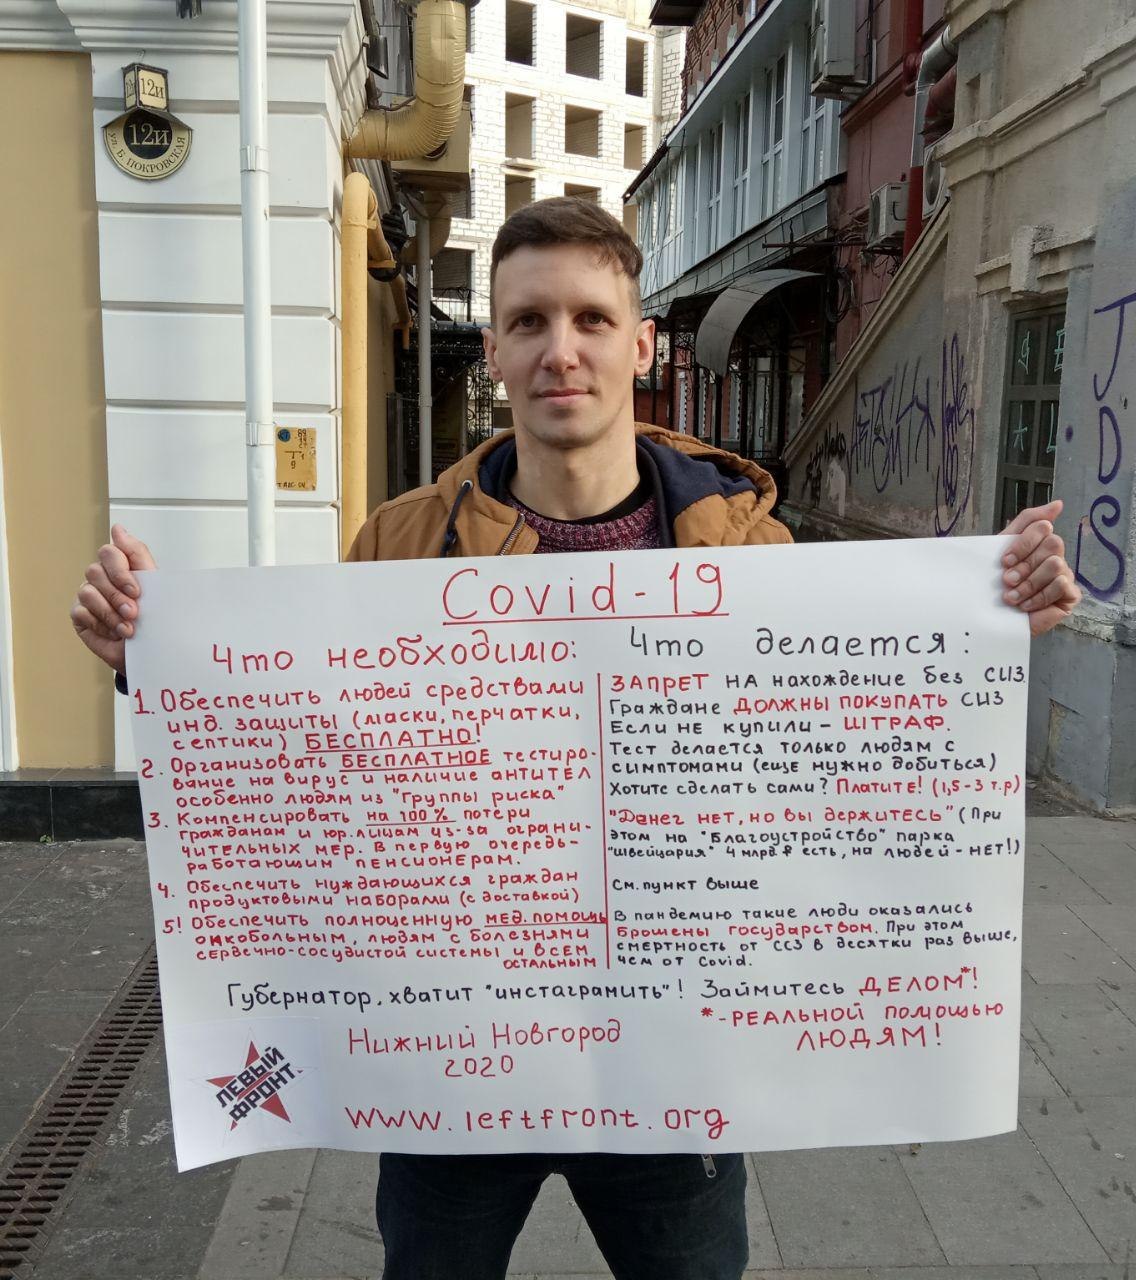 12и
12и
ул. Б. ПОКРОВСКАЯ
Covid-19
Что необходимо:
1. Обеспечить людей средствами
инд. защиты (маски, перчатки,
септики) БЕСПЛАТНО!
2. Организовать БЕСПЛАТНОЕ тестиро-
вание на вирус и наличие антител
особенно людям из "Группы риска"
3. Компенсировать на 100% потери
гражданам и юр.лицам из-за ограни-
чительных мер. В первую очередь-
работающим пенсионерам.
4. Обеспечить нуждающихся граждан
продуктовыми наборами (с доставкой)
5! Обеспечить полноценную мед. помощь
онкобольным, людям с болезнями
сердечно-сосудистой системы и всем
остальным
Что делается:
ЗАПРЕТ на нахождение без СИЗ.
Граждане ДОЛЖНЫ ПОКУПАТЬ СИЗ
Если не купили - ШТРАФ.
Тест делается только людям с
симптомами (еще нужно добиться)
Хотите сделать сами? Платите! (1,5-3 т.р)
"Денег нет, но вы держитесь" (При
этом на "Благоустройство" парка
"Швейцария" 4 млрд.₽ есть, на людей - НЕТ!)
См. пункт выше
В пандемию такие люди оказались
брошены государством. При этом
смертность от ССЗ в десятки раз выше,
чем от Covid.
Губернатор, хватит "инстаграмить"! Займитесь ДЕЛОМ*!
*-РЕАЛЬНОЙ помощью
ЛЮДЯМ!
Нижний Новгород
2020
ЛЕВЫЙ
ФРОНТ
www.leftfront.org
JDS